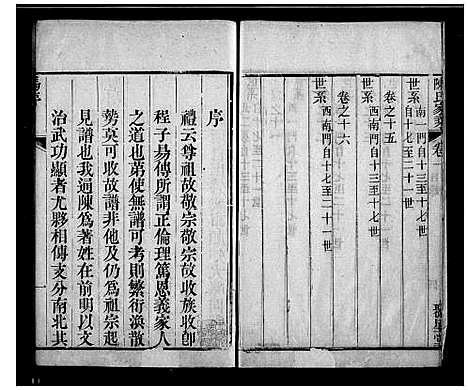 陳氏家乘 卷一
南門自十三至十七世
自十七至二十一世
卷之十五
世系 西南門自十三至十七世
卷之十六
世系 西南門自十七至二十一世
序
禮云尊祖故敬宗敬宗故收族收卽
程子易傳所謂正倫理篤恩義家人
之道也第使無譜可考則繁衍渙散
勢莫可收故譜非他及仍爲祖宗起
見譜也我邁陳爲著姓在前明以文
治武功顯者尤夥相傳支分南北共
一